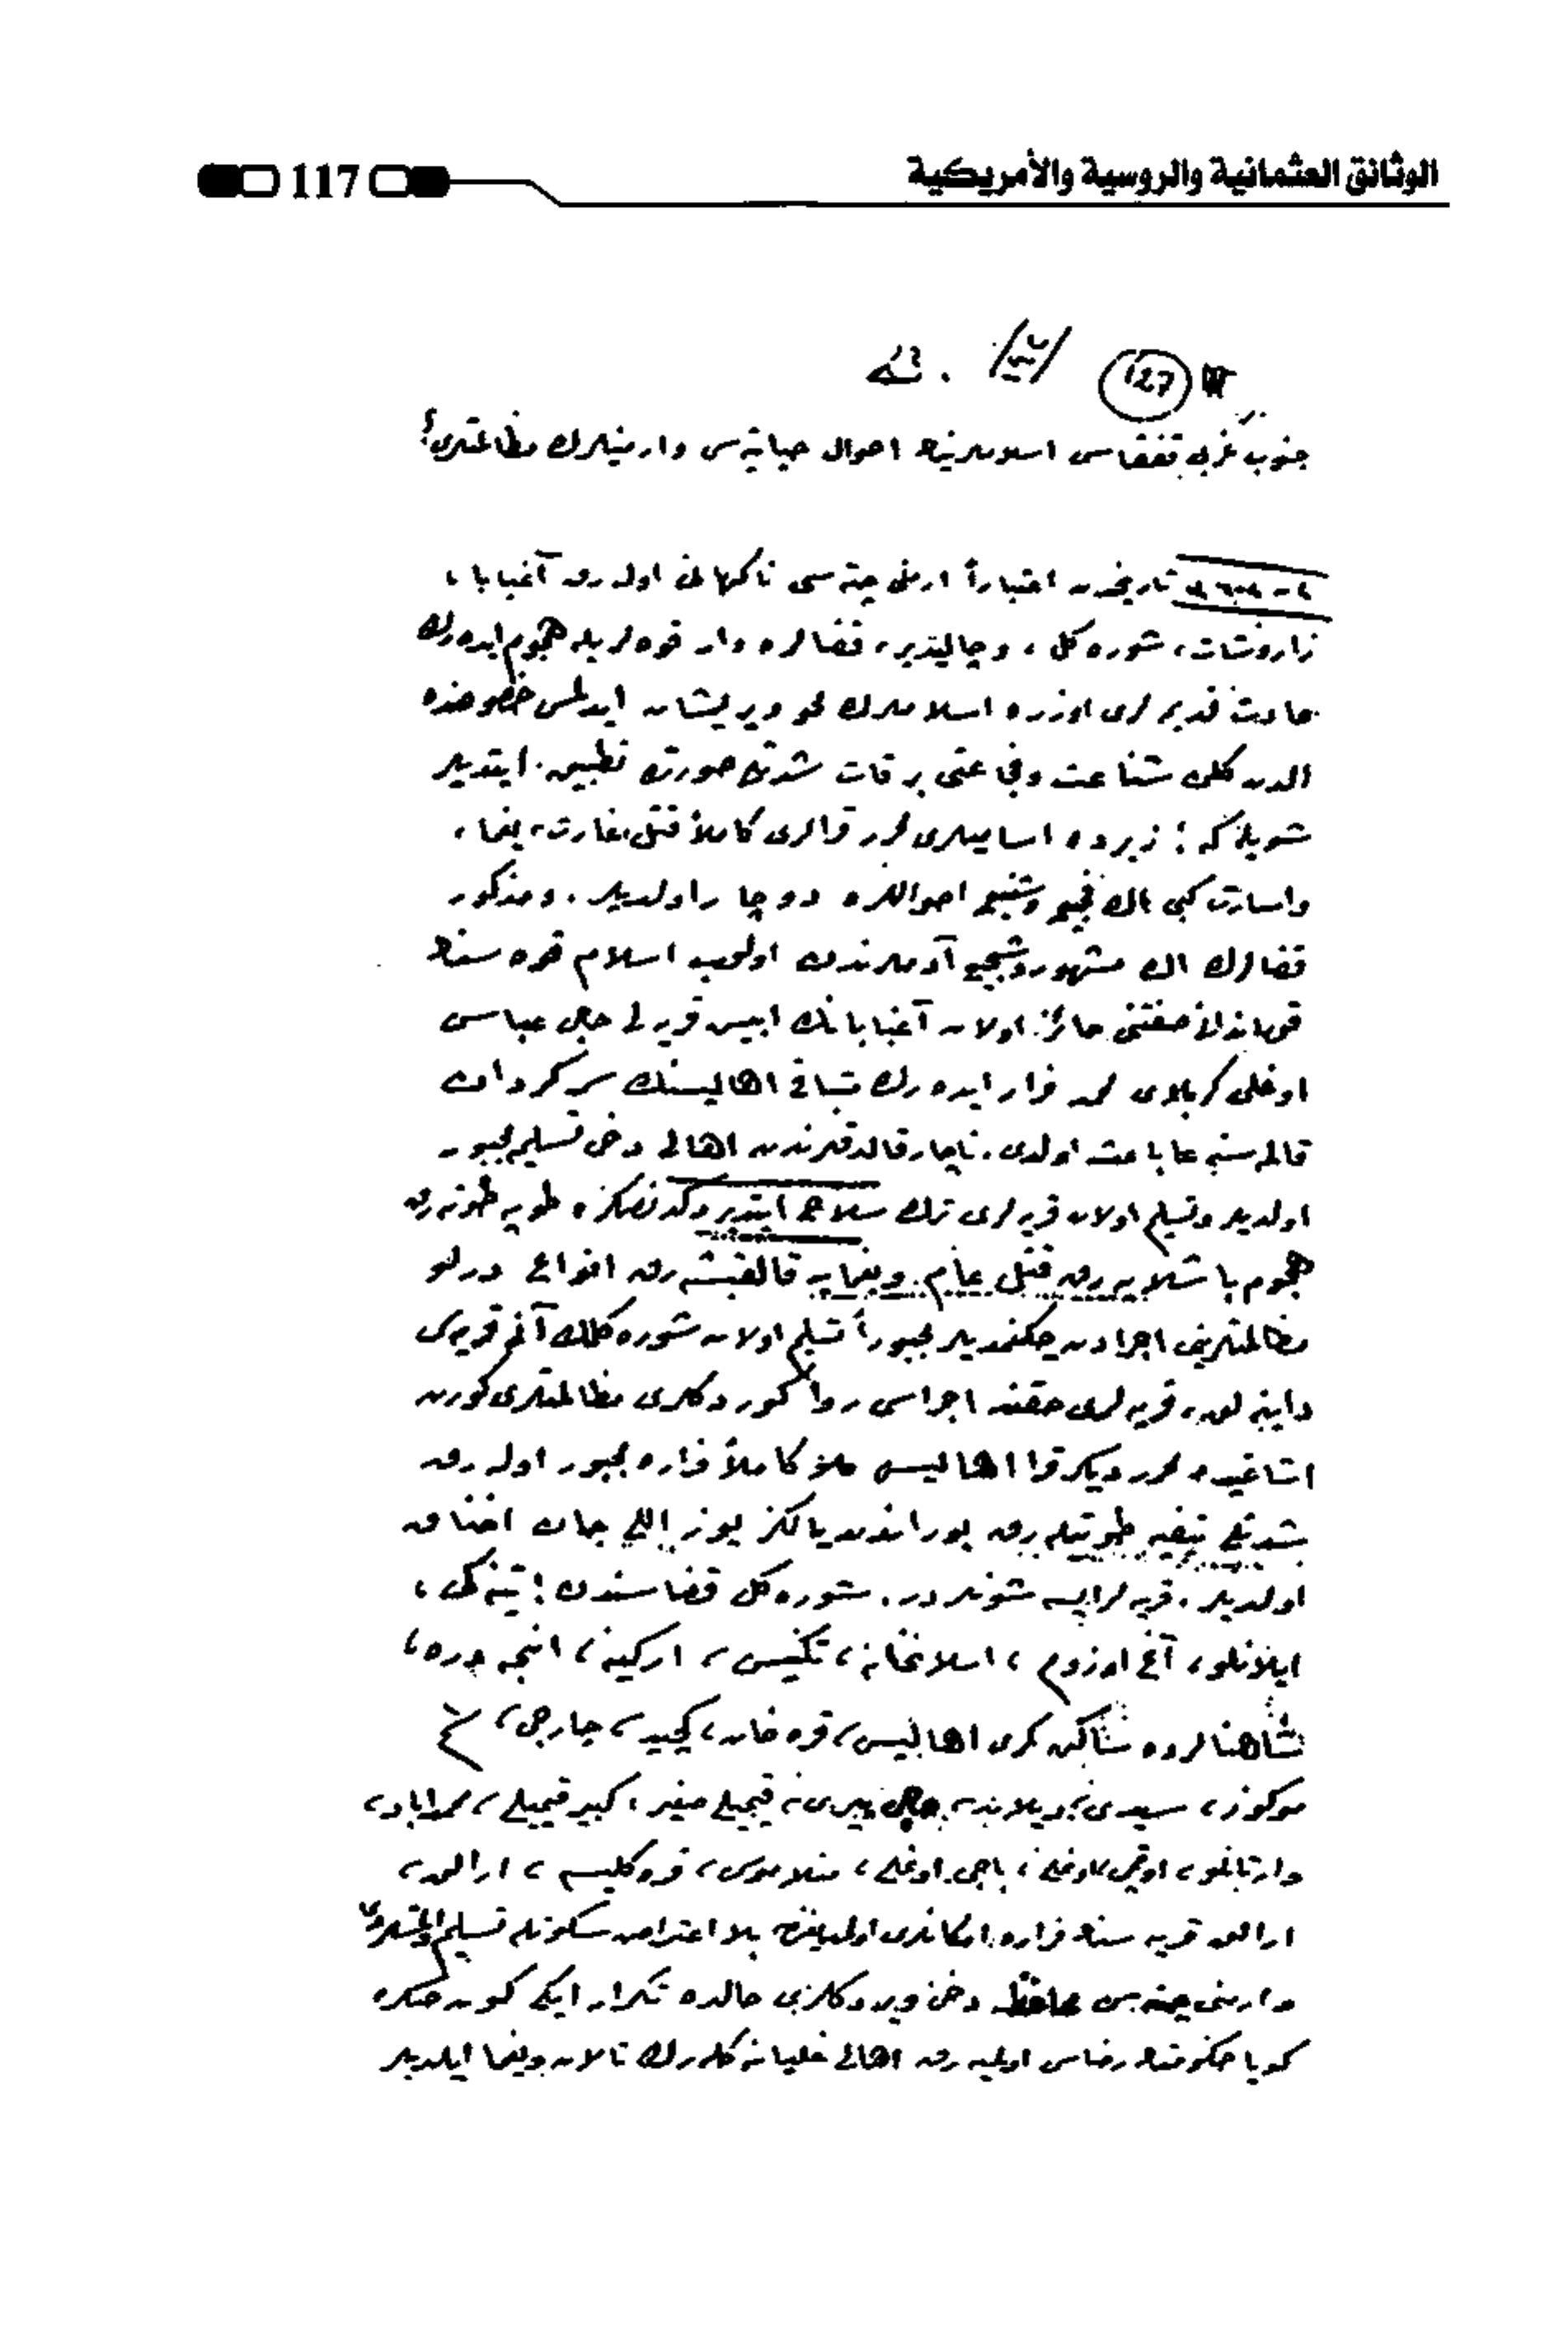 الوثائق العثمانية والروسية والأمريكية
117
127
جنوب غربی قفقاسی اسلاملرینك احوال حیاتیه‌سی وارمنیلرك مظالمتلری
تاریخدن اعتباراً ارمنی چته‌سی ناکهانی اوله‌رق آغبابا ،
زاروشات، شوره‌کل ، وچالدیر، قضالره وار قوه‌لریله هجوم ایده‌رك
عادت قدیمه‌لری اوزره اسلاملرك محو وپریشان ایدلمسی خصوصنده
الدن کلن شناعت وفجاعتی بر قات شدتلی صورتده تطبیق ایتدیلر
شویله‌که : زیرده اسامیلری محرر قرالری کاملاً قتل، غارت، یغما ،
واسارت کبی الك فجیع وشنیع احواللره دوچار اولدیلر . ومذکور
قضالرك الك مشهور وشجیع آدملرندن اولوب اسلام قوه‌سنك
قوماندانلق صفتنی حائز اولان آغبابانك ابیس قریه‌لی حاجی عباس
اوغلی کربلای محمد فرار ایده‌رك باقی اهالیسنك سرکردان
قالمسنه باعث اولدی . ناچار قالدقلرندن اهالی دخی تسلیمه مجبور
اولدیلر وتسلیم اولان قریه‌لری ترك سلاح ایتدیردکدنصکره طوپه طوته‌رق
هجوم باشلایه‌رق قتل عام ویغمایه قالقیشه‌رق انواع درلو
مظالمتلرینی اجرادن چکنمدیلر مجبوراً تسلیم اولان شوره‌کلك قریه‌لری
حقنده اجراسی روا کوردکلری مظالمتلری کورن
اشاغیده محرر دیکر قرا اهالیسی کاملاً فراره مجبور اوله‌رق
شدتلی تیپیه طوتیله‌رق بوراندن یالکز یوز اللی جان اختناق
اولدیلر . قریه‌لر ایسه شونلردر . شوره‌کل قضاسندن :
ایلانلو ، آغ اوزوم ، اسلانخانه ، تکنیس ، ارکینه ، اینجه دره ،
شاهنالرده ساکن اهالیسی ، قره‌خان ، کچید ، جارجی ،
موکوز ، سیدی ، دیلاور ، حاجی پیری ، قیجیلی صغیر ، کبیر قیجیلی ، محمدآباد ،
وارتانلو ، باجی اوغلی ، منلا موسی ، قره‌کلیسه ، ارالق ،
ارالق قریه‌سنك فراره امکانلری اولمدیغندن بلا اعتراض سکونتله تسلیم
وارمنی چته‌سی محافظه دخی ویردکلری حالده تکرار ایکی کون صکره
کویا حکومتك رضاسی اولمیه‌رق اهالی غلیانه کله‌رك تالان ویغما ایلدیلر